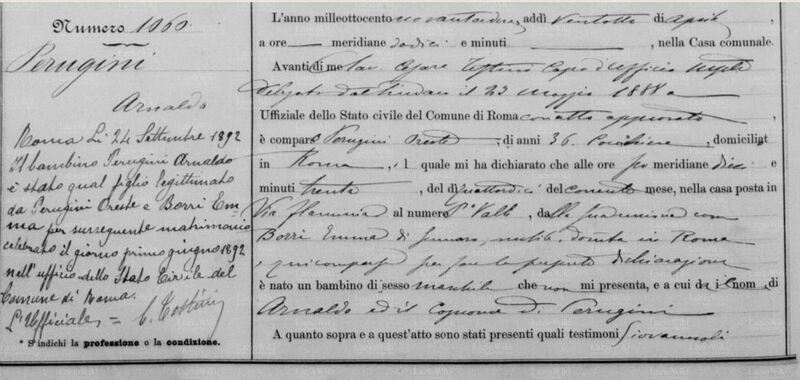 Numero 1060.
Perugini
Arnaldo
Roma Li 24 Settembre 1892
Il bambino Perugini Arnaldo
è stato qual figlio legittimato
da Perugini Oreste e Borri Em=
ma per susseguente matrimonio
celebrato il giorno primo giugno 1892
nell'ufficio dello Stato Civile del
Comune di Roma.
L'Ufficiale = C. Tettini
* Si indichi la professione o la condizione.
L'anno milleottocento novantadue, addì Ventotto di Aprile,
a ore meridiane dodici e minuti , nella Casa comunale.
Avanti di me Cav. Cesare Tettini Capo d'Ufficio
delegato dal Sindaco il 23 Maggio 1888
Uffiziale dello Stato civile del Comune di Roma con atto approvato
è comparso Perugini Oreste, di anni 36. , domiciliat
in Roma, il quale mi ha dichiarato che alle ore meridiane dieci e
minuti trenta, del dì quattordici del corrente mese, nella casa posta in
Via flaminia al numero , dalla sua unione con
Borri Emma di , nubile, in Roma
, qui comparsa per fare la presente dichiarazione
è nato un bambino di sesso maschile che non mi presenta, e a cui dà i nom di
Arnaldo ed il cognome di Perugini
A quanto sopra e a quest'atto sono stati presenti quali testimoni Giovannoli